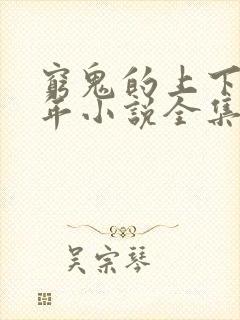 窮鬼的上下
年小說全集
吴宗琴